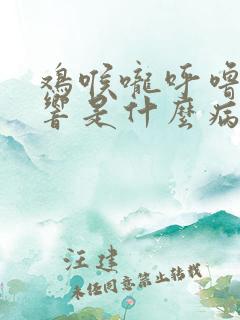 鸡喉嚨呼嚕
響是什麼病
汪建
未经同意禁止转载